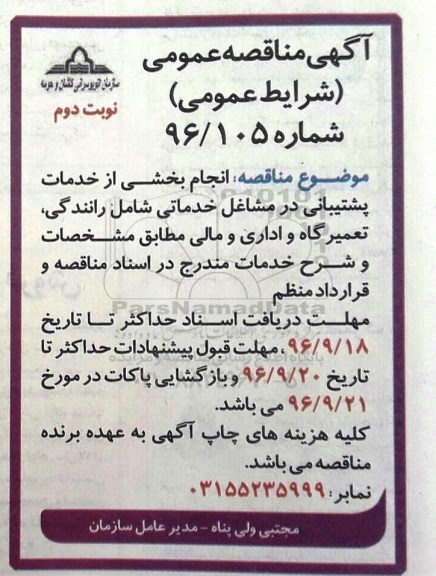 آگهی مناقصه عمومی
(شرایط عمومی)
شماره ۹۶/۱۰۵
سازمان اتوبوسرانی کاشان و حومه
نوبت دوم
موضوع مناقصه: انجام بخشی از خدمات
پشتیبانی در مشاغل خدماتی شامل رانندگی،
تعمیرگاه و اداری و مالی مطابق مشخصات
و شرح خدمات مندرج در اسناد مناقصه و
قرارداد منظم
مهلت دریافت اسناد حداکثر تا تاریخ
۹۶/۹/۱۸، مهلت قبول پیشنهادات حداکثر تا
تاریخ ۹۶/۹/۲۰ و بازگشایی پاکات در مورخ
۹۶/۹/۲۱ می باشد.
کلیه هزینه های چاپ آگهی به عهده برنده
مناقصه می باشد.
نمابر: ۰۳۱۵۵۲۳۵۹۹۹
مجتبی ولی پناه - مدیر عامل سازمان
ParsNamadData